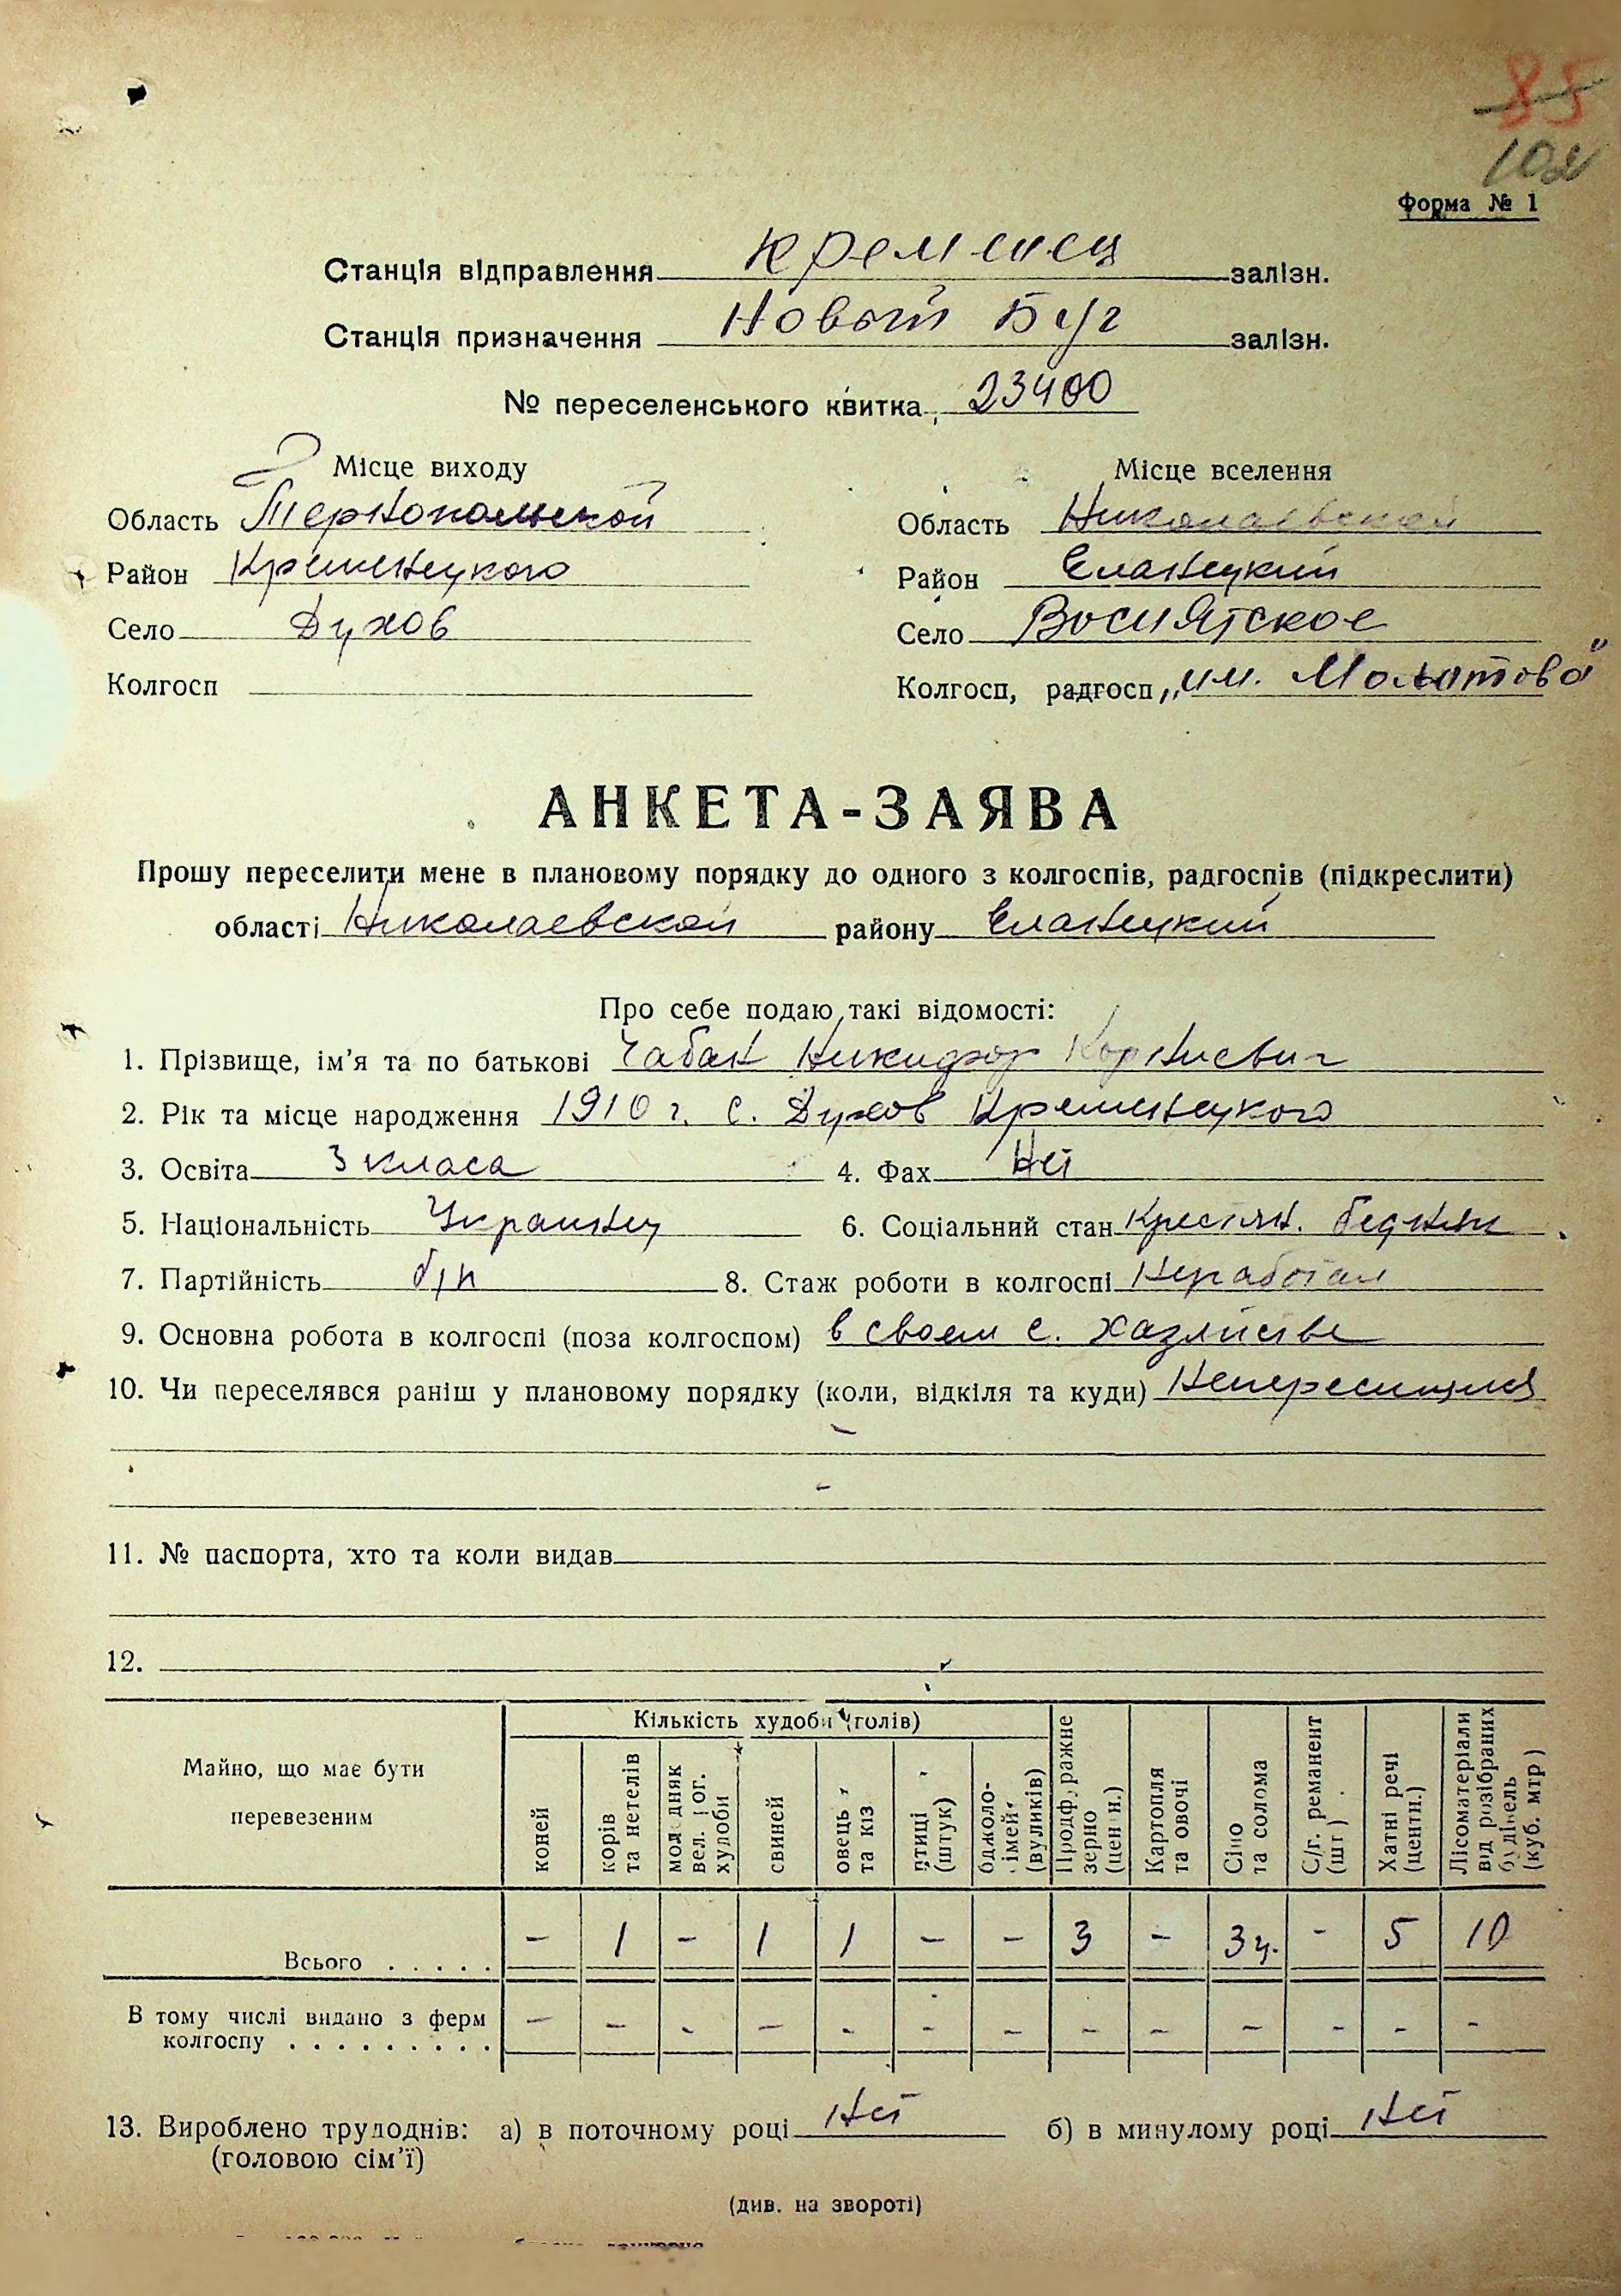 85
102
Форма № 1
Станція відправлення Кременец залізн.
Станція призначення Новый Буг залізн.
№ переселенського квитка 23400
Місце виходу
Область Тернопольской
Район Кременецкого
Село Духов
Колгосп
Місце вселення
Область Николаевской
Район Еланецкий
Село Восиятское
Колгосп, радгосп „им. Молотова"
АНКЕТА-ЗАЯВА
Прошу переселити мене в плановому порядку до одного з колгоспів, радгоспів (підкреслити)
області Николаевской району Еланецкий
Про себе подаю такі відомості:
1. Прізвище, ім’я та по батькові Чабан Никифор Корниевич
2. Рік та місце народження 1910 г. с. Духов Кременецкого
3. Освіта 3 класа 4. Фах Нет
5. Національність Украинец 6. Соціальний стан Крестян. бедняк
7. Партійність б/п 8. Стаж роботи в колгоспі Неработал
9. Основна робота в колгоспі (поза колгоспом) в своем с. хазяйстве
10. Чи переселявся раніш у плановому порядку (коли, відкіля та куди)
11. № паспорта, хто та коли видав
12.
Майно, що має бути перевезеним
Кількість худоби (голів)
коней
корів та нетелів
молодняк вел. рог. худоби
свиней
овець та кіз
птиці (штук)
бджоло-сімей (вуликів)
Продфуражне зерно (центн.)
Картопля та овочі
Сіно та солома
С/г. реманент (шт.)
Хатні речі (центн.)
Лісоматеріали від розібраних будівель (куб. мтр)
Всього . . . . . - 1 - 1 1 - - 3 - 3 ц. - 5 10
В тому числі видано з ферм
колгоспу . . . . . . . . . - - - - - - - - - - - - -
13. Вироблено трудоднів: а) в поточному році Нет б) в минулому році Нет
(головою сім’ї)
(див. на звороті)